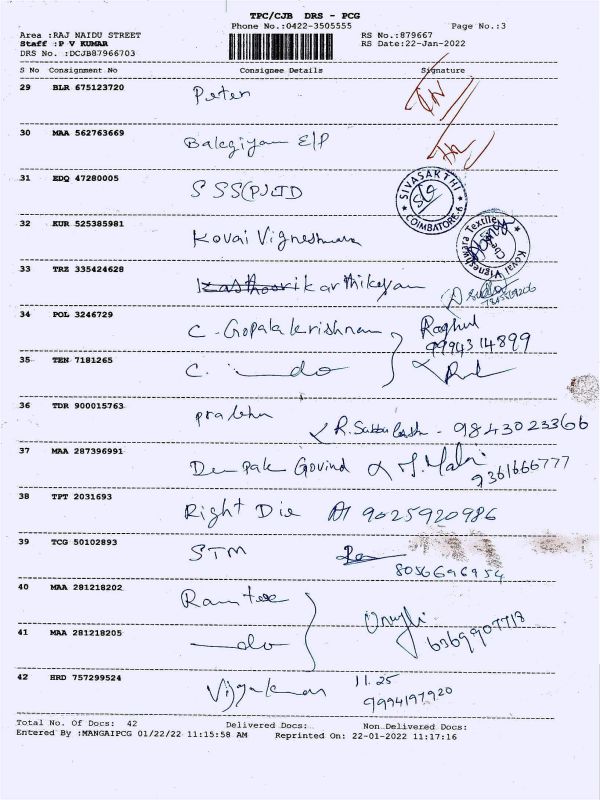 TPC/CJB DRS - PCG
Phone No.:0422-3505555
Page No.:3
Area :RAJ NAIDU STREET
RS No.:879667
Staff :P V KUMAR
RS Date:22-Jan-2022
DRS No. :DCJB87966703
S No Consignment No Consignee Details Signature
29 BLR 675123720 Peter
30 MAA 562763669 E/P
31 EDQ 47280005 S SS(P)LTD
SIVASAKTHI
COIMBATORE-9
32 KUR 525385981 Kovai Vigneshwara
Kovai Vigneshwara Textile
33 TRZ 335424628 Karthikeyan
34 POL 3246729 C. Gopalakrishnan Raghul
9994314899
35 TEN 7181265 C. do
36 TDR 900015763 prabhu
R. - 9843023366
37 MAA 287396991 Deepak Govind
9361666777
38 TPT 2031693 Right Die 9025920986
39 TCG 50102893 STM
8056696954
40 MAA 281218202
6369907718
41 MAA 281218205 do
42 HRD 757299524 Vijayakumar 11.25
9994197920
Total No. Of Docs: 42 Delivered Docs: Non Delivered Docs:
Entered By :MANGAIPCG 01/22/22 11:15:58 AM Reprinted On: 22-01-2022 11:17:16